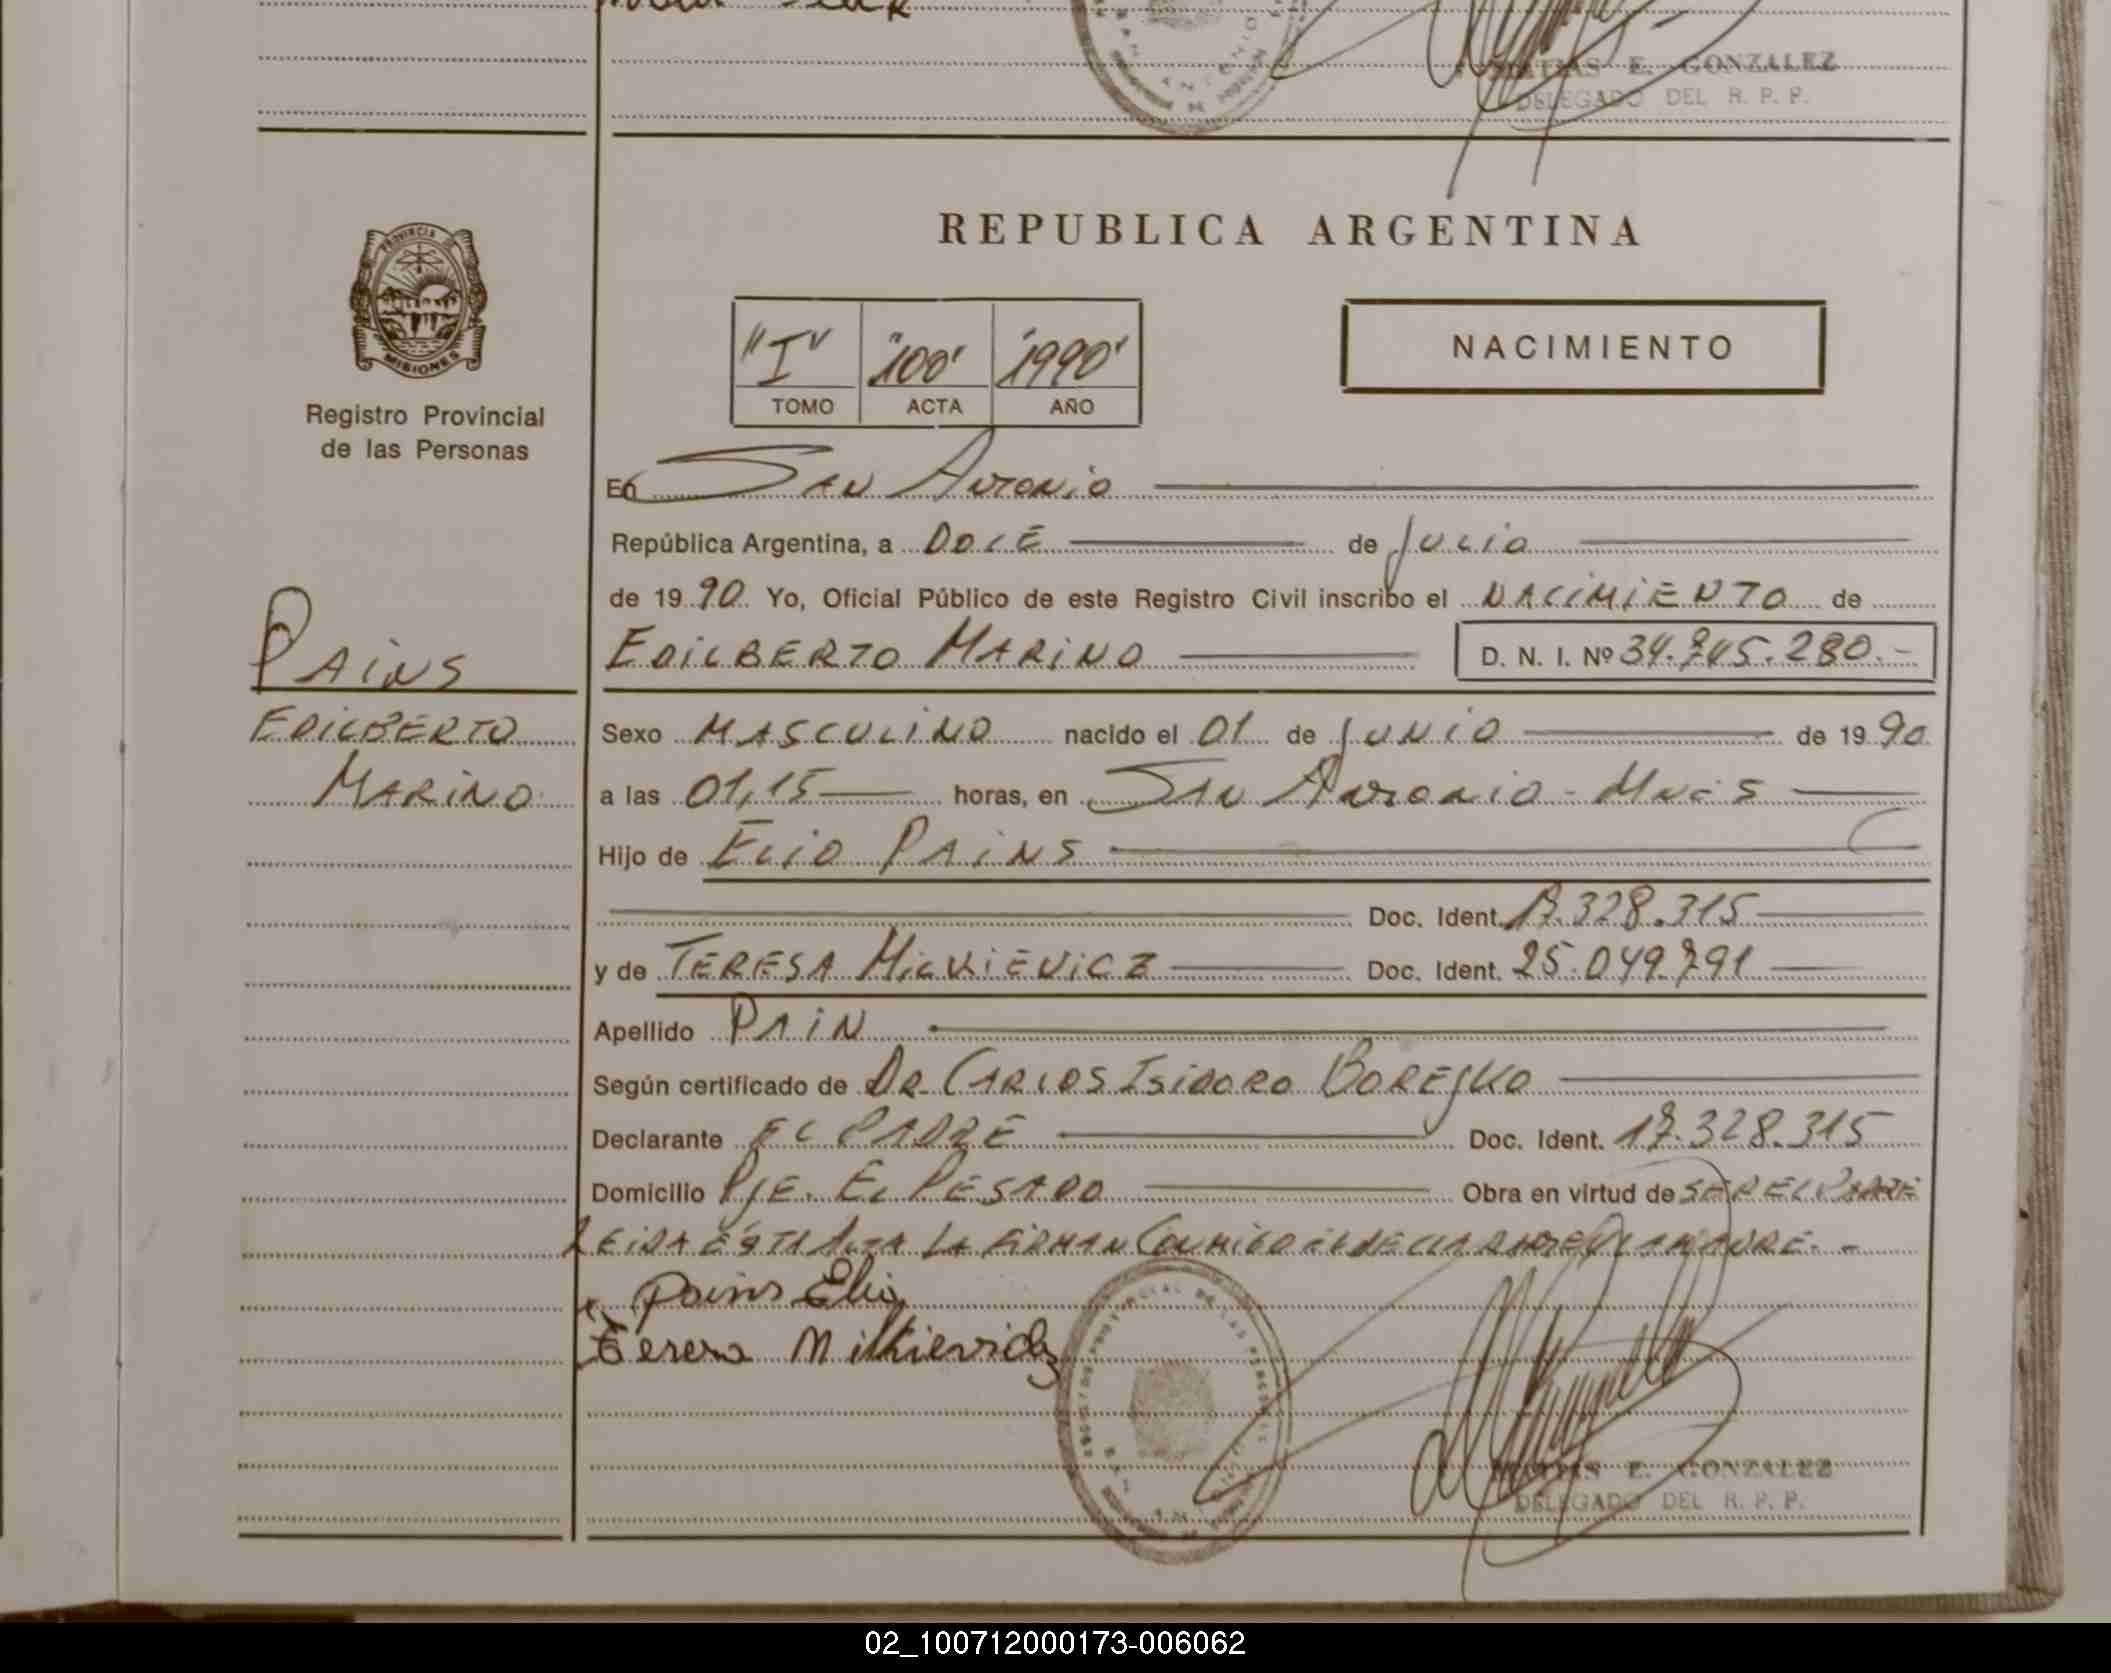 MATIAS E. GONZALEZ
DELEGADO DEL R. P. P.
PROVINCIA DE
MISIONES
Registro Provincial
de las Personas
REPUBLICA ARGENTINA
"I" "100" "1990"
TOMO ACTA AÑO
NACIMIENTO
En SAN ANTONIO
República Argentina, a DOCE de JULIO
de 1990 Yo, Oficial Público de este Registro Civil inscribo el NACIMIENTO de
EDILBERTO MARINO D. N. I. Nº 34.745.280.-
PAINS
EDILBERTO
MARINO
Sexo MASCULINO nacido el 01 de JUNIO de 1990
a las 01,15 horas, en SAN ANTONIO - Mnes
Hijo de ELIO PAINS
Doc. Ident. 17.328.315
y de TERESA MICKIEVICZ Doc. Ident. 25.049.791
Apellido PAIN
Según certificado de DR. CARLOS ISIDORO BOREJKO
Declarante EL PADRE Doc. Ident. 17.328.315
Domicilio PJE. EL PESADO Obra en virtud de SER EL PADRE
LEIDA ESTA ACTA LA FIRMAN CONMIGO EL DECLARANTE Y LA MADRE. -
Pains Elio
Teresa Mikievicz
MATIAS E. GONZALEZ
DELEGADO DEL R. P. P.
02_100712000173-006062